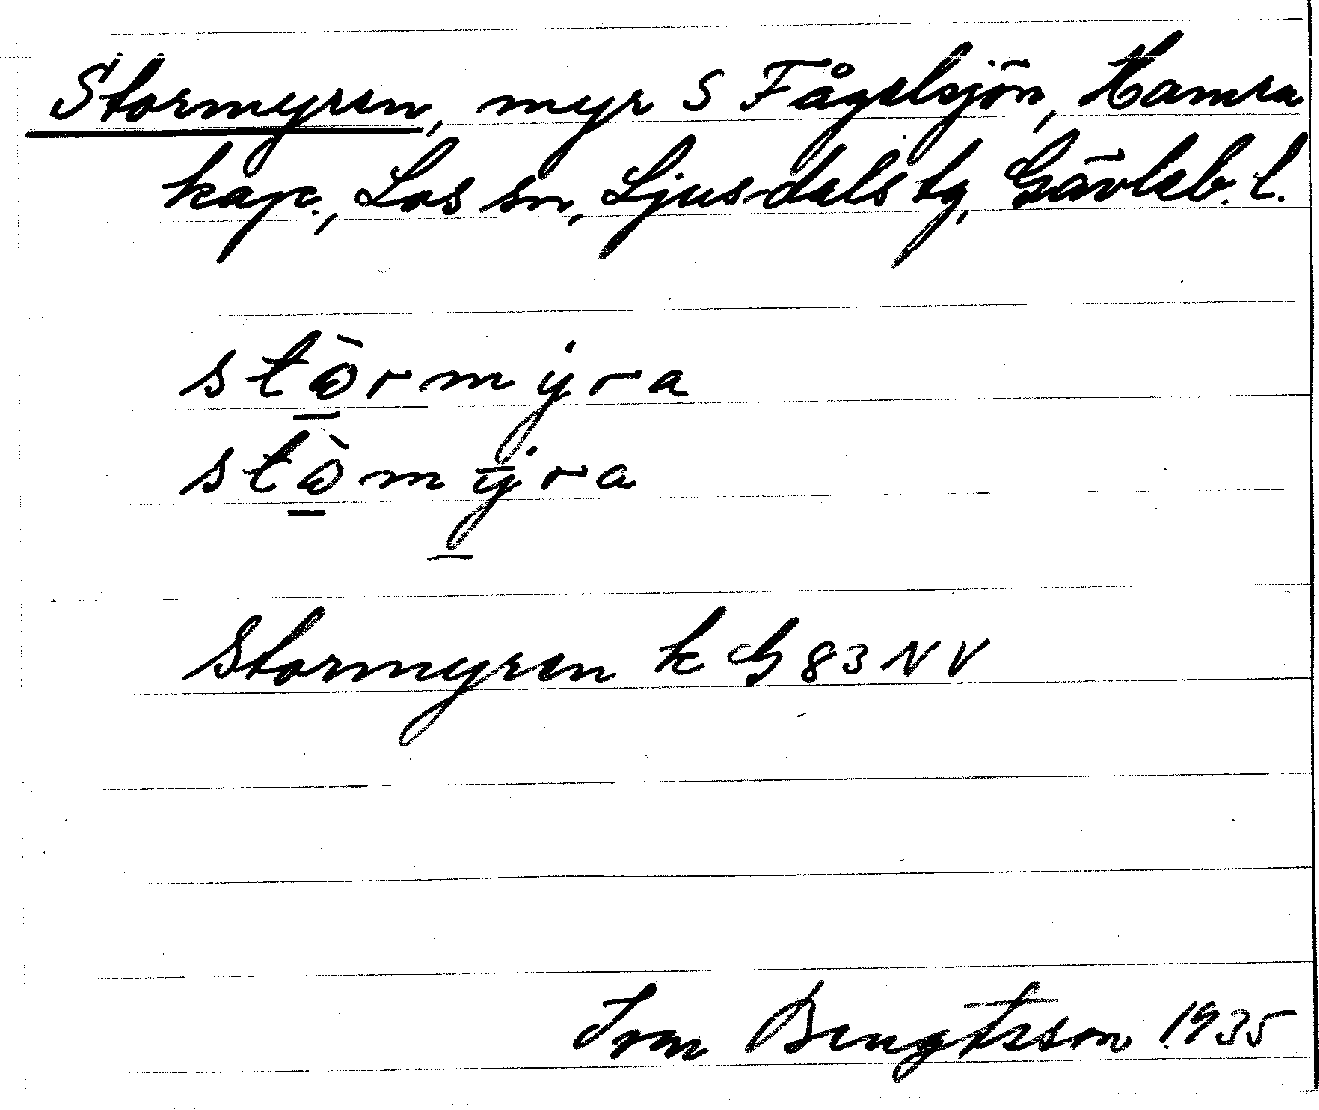 Stormyren, myr S Fågelsjön, Hamra
kap., Los sn, Ljusdals tg, Gävleb. l.
stò̱rmẏra
stò̱mẏ̱ra
Stormyren k G 83 NV
Ivan Bengtsson 1935